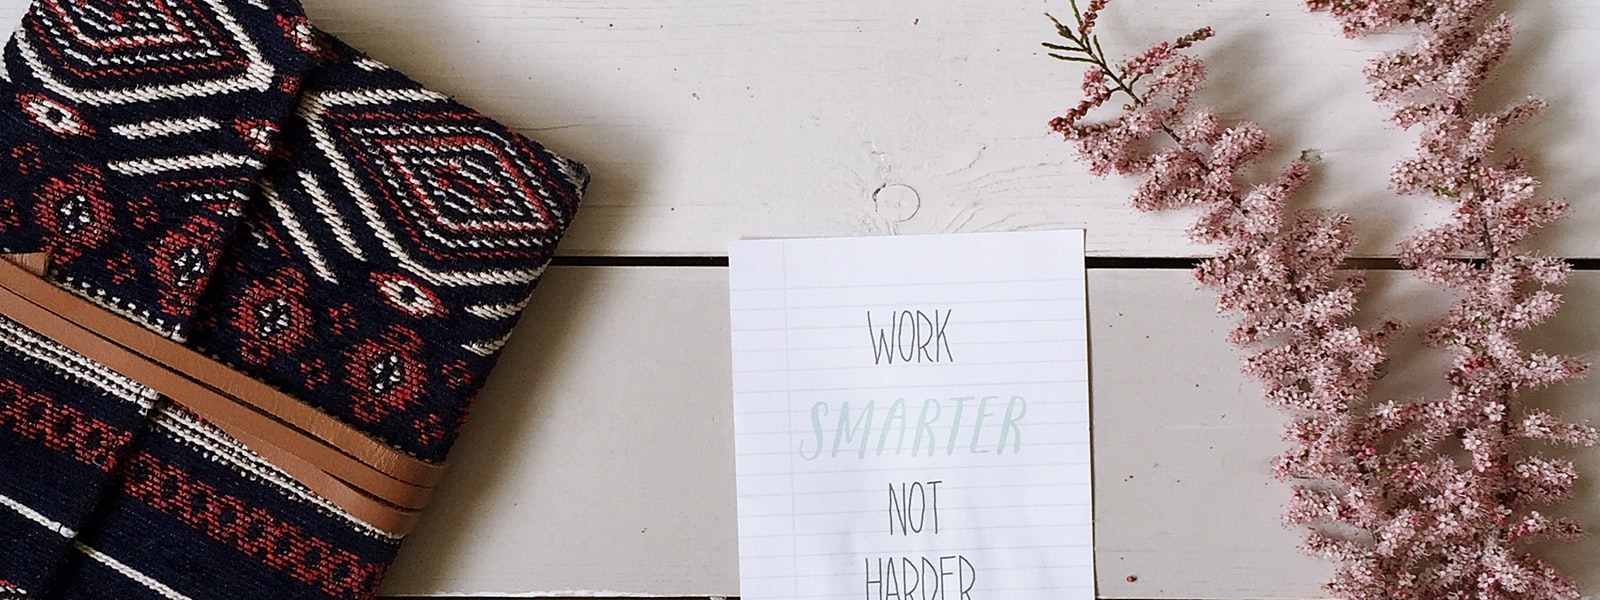 WORK
SMARTER
NOT
HARDER